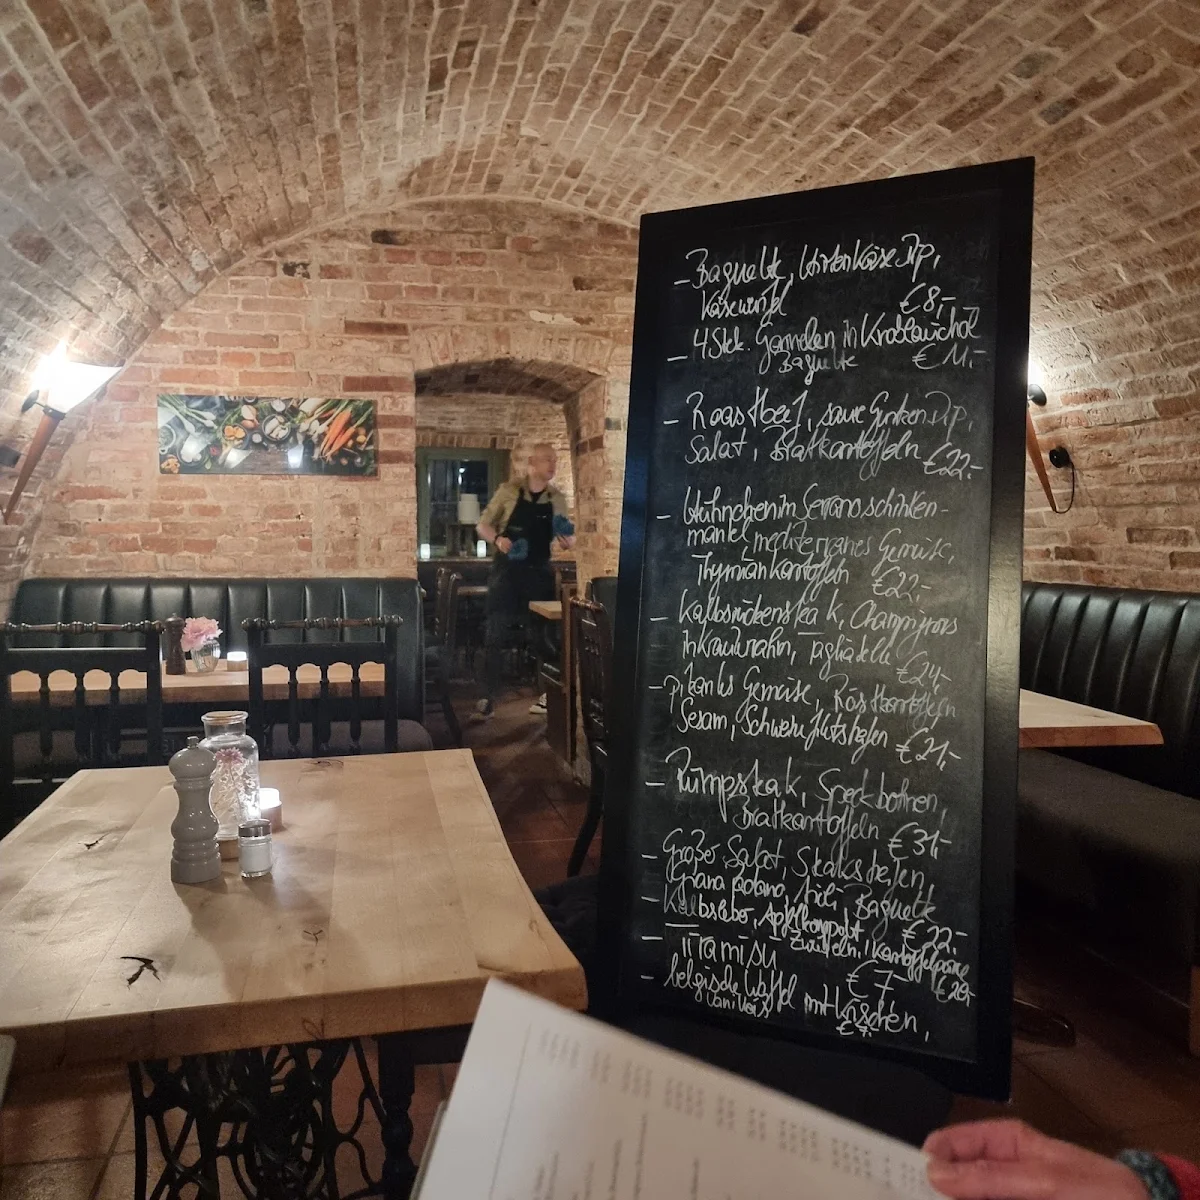 – Baguette, Hirtenkäse Dip,
Käsewürfel €8,-
– 4 Stck. Garnelen in Knoblauchöl
Baguette €11,-
– Roastbeef, saure Gurken Dip,
Salat, Bratkartoffeln €22,-
– Hühnchen im Serranoschinken-
mantel, mediterranes Gemüse,
Thymiankartoffeln €22,-
– Kalbsrückensteak, Champignons
in Kräuterrahm, Tagliatelle €24,-
– Gemüse, Röstkartoffeln
Sesam, Schweinefiletstreifen €21,-
– Rumpsteak, Speckbohnen,
Bratkartoffeln €31,-
– Großer Salat, Steakstreifen
Grana Padano, Baguette €22,-
– Kalbsleber, Apfelkompott
Zwiebeln, Kartoffelpüree
– Tiramisu €7 €26,-
– belgische Waffel mit Kirschen,
Vanilleeis €7,-